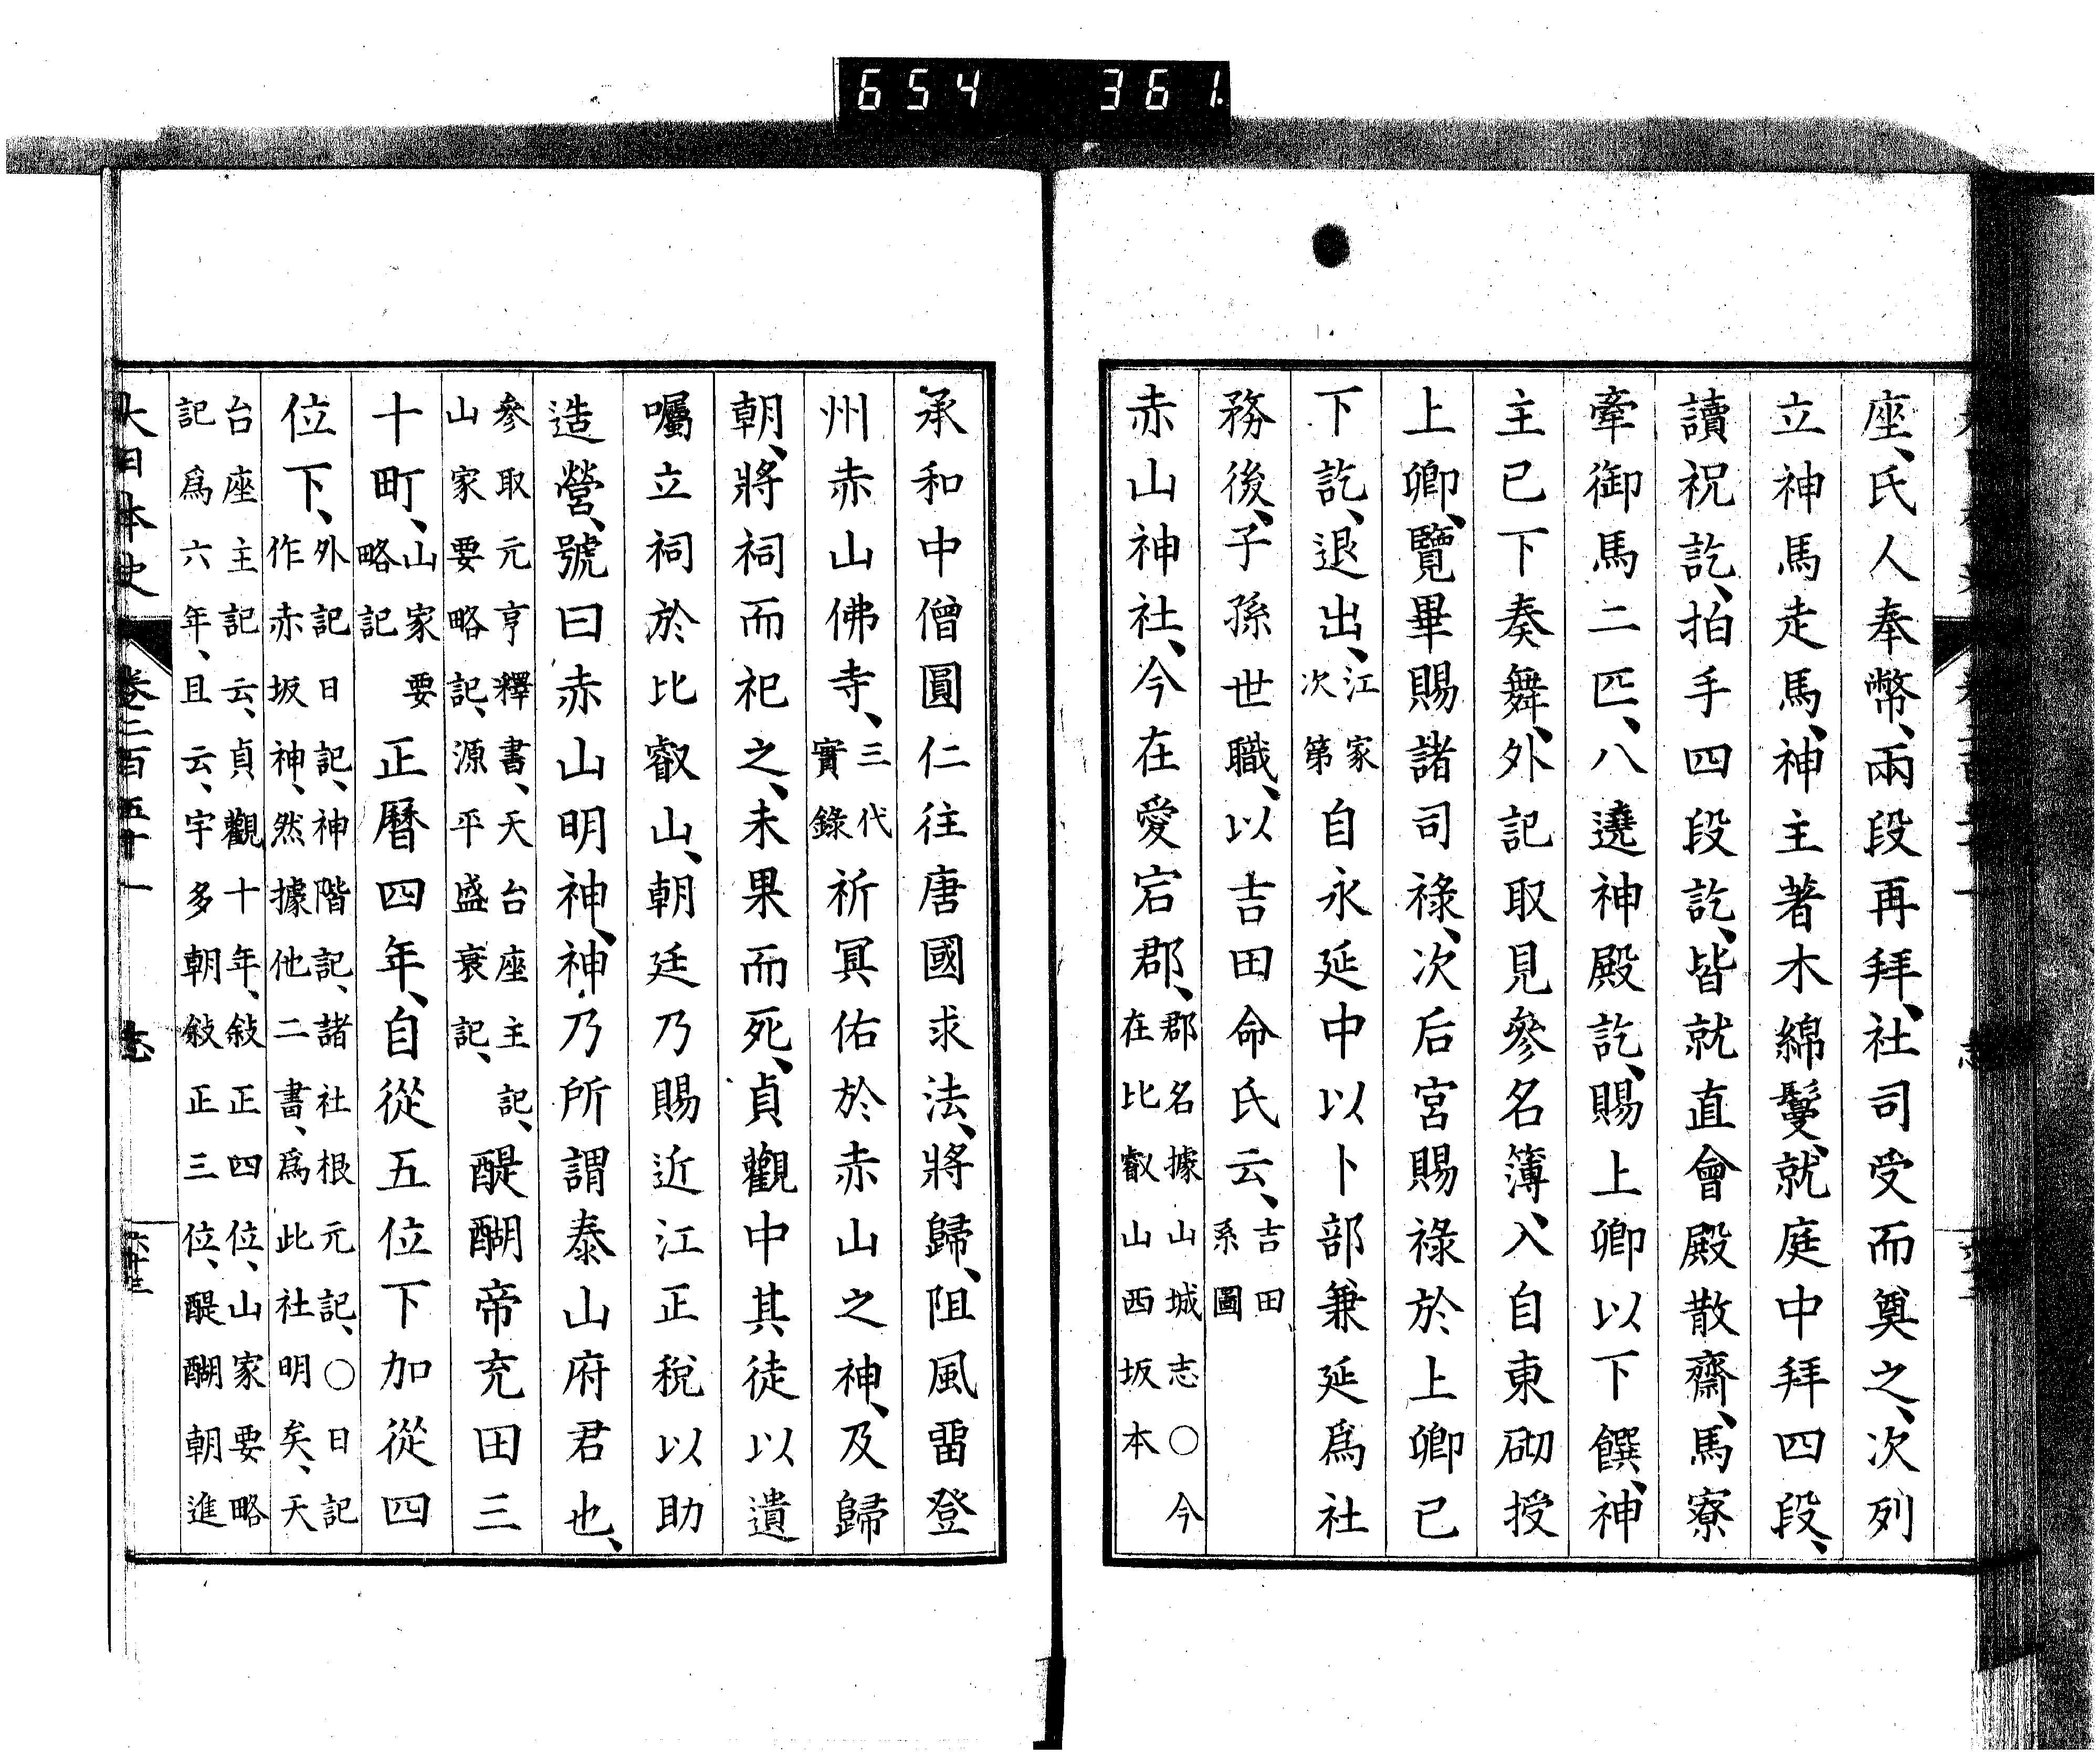 654 361.
座、氏人奉幣、兩段再拜、社司受而奠之、次列
立神馬走馬、神主著木綿鬘、就庭中拜四段、
讀祝訖、拍手四段訖、皆就直會殿散齋、馬寮
牽御馬二匹、八遶神殿訖、賜上卿以下饌、神
主已下奏舞、外記取見參名簿、入自東砌授
上卿、覽畢賜諸司祿、次后宮賜祿於上卿已
下訖、退出、江家次第自永延中以卜部兼延爲社
務後、子孫世職、以吉田命氏云、吉田系圖
赤山神社、今在愛宕郡、郡名據山城志○今在比叡山西坂本
承和中僧圓仁往唐國求法、將歸、阻風畱登
州赤山佛寺、三代實錄祈冥佑於赤山之神、及歸
朝、將祠而祀之、未果而死、貞觀中其徒以遺
囑立祠於比叡山、朝廷乃賜近江正稅以助
造營、號曰赤山明神、神乃所謂泰山府君也、
參取元亨釋書、天台座主記、山家要略記、源平盛衰記、醍醐帝充田三
十町、山家要略記正曆四年、自從五位下加從四
位下、外記日記、神階記、諸社根元記、○日記作赤坂神、然據他二書、爲此社明矣、天
台座主記云、貞觀十年、敍正四位、山家要略記爲六年、且云、宇多朝敍正三位、醍醐朝進
大日本史 卷二百五十一 志